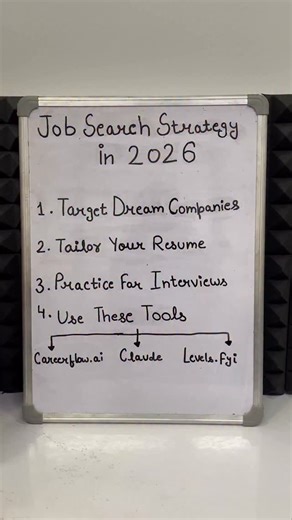 Job Search Strategy
in 2026
1. Target Dream Companies
2. Tailor Your Resume
3. Practice For Interviews
4. Use These Tools
Careerflow.ai Claude Levels.fyi